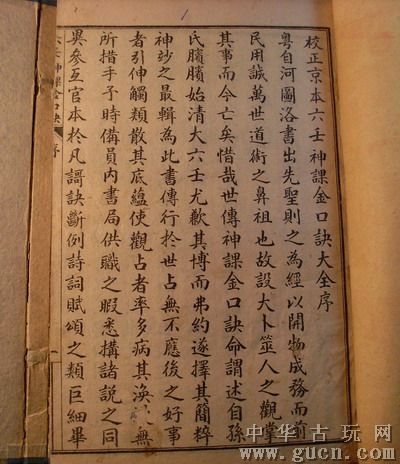 校正京本六壬神課金口訣大全序
粵自河圖洛書出先聖則之為經以開物成務而前
民用誠萬世道術之鼻祖也故設大卜筮人之觀掌
其事而今亡矣惜哉世傳神課金口訣命謂述自孫
氏臏臏始清大六壬尤歉其博而弗約遂擇其簡粹
神玅之最輯為此書傳行於世占無不應後之好事
者引伸觸類散其底蘊使觀占者率多病其渙無
所措手予時備員內書局供職之暇悉搆諸說之同
異參互官本於凡謌訣斷例詩詞賦頌之類巨細畢
壬神課金口訣 序 一
中华古玩网
www.gucn.com